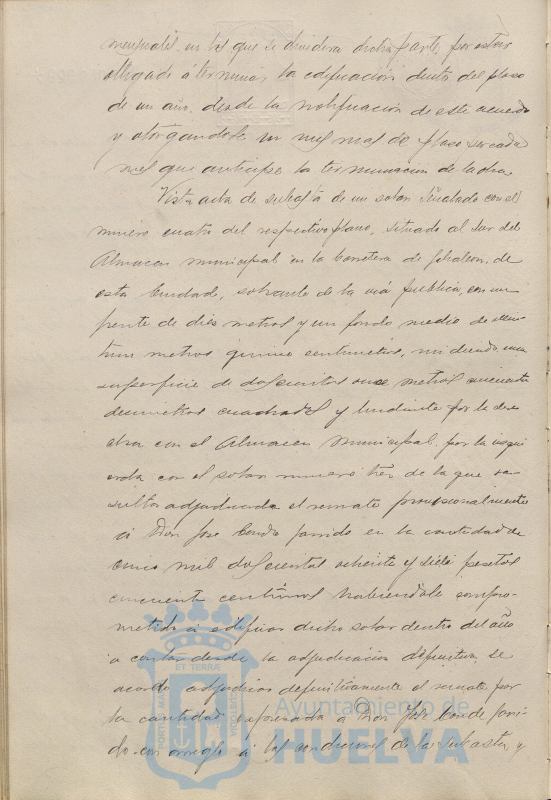 mensuales en los que se dividera dicha parte, por estar
obligado á terminar la edificación dentro del plazo
de un año desde la notificación de este acuerdo
y otorgandole un mes mas de plazo por cada
mes que anticipe la terminacion de la obra.
Vista acta de subasta de un solar señalado con el
numero cuatro del respectivo plano, situado al Sur del
Almacen municipal en la Carretera de Gibraleon, de
esta Ciudad, sobrante de la via publica, con un
frente de diez metros y un fondo medio de vein
tiun metros quince centimetros, midiendo una
superficie de doscientos once metros cincuenta
decimetros cuadrados y lindante por la dere
cha con el Almacen municipal, por la izqui
erda con el solar numero tres de la que re
sulta adjudicado el remate provisionalmente
á Don José Conde Garrido en la cantidad de
cinco mil doscientas ochenta y siete pesetas
cincuenta centimos habiendose compro-
metido á edificar dicho solar dentro del año
a contar desde la adjudicación definitiva se
acordó adjudicar definitivamente el remate por
la cantidad expresada a Don José Conde Garri
do con arreglo á las condiciones de la subasta, y
Ayuntamiento de
HUELVA
PORTUS MARIS
ET TERRAE
CUSTODIA